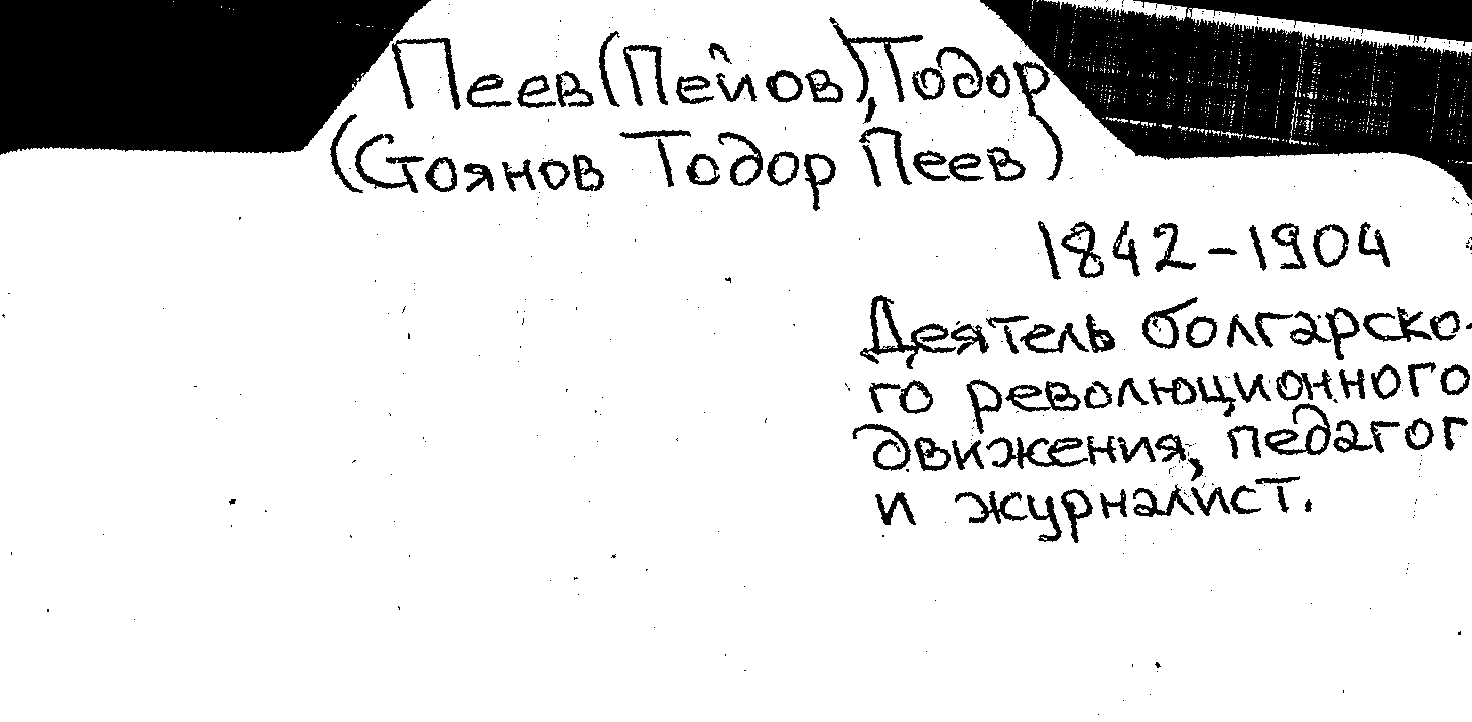 Пеев (Пейов), Тодор
(Стоянов Тодор Пеев)
1842-1904
Деятель болгарско-
го революционного
движения, педагог
и журналист.